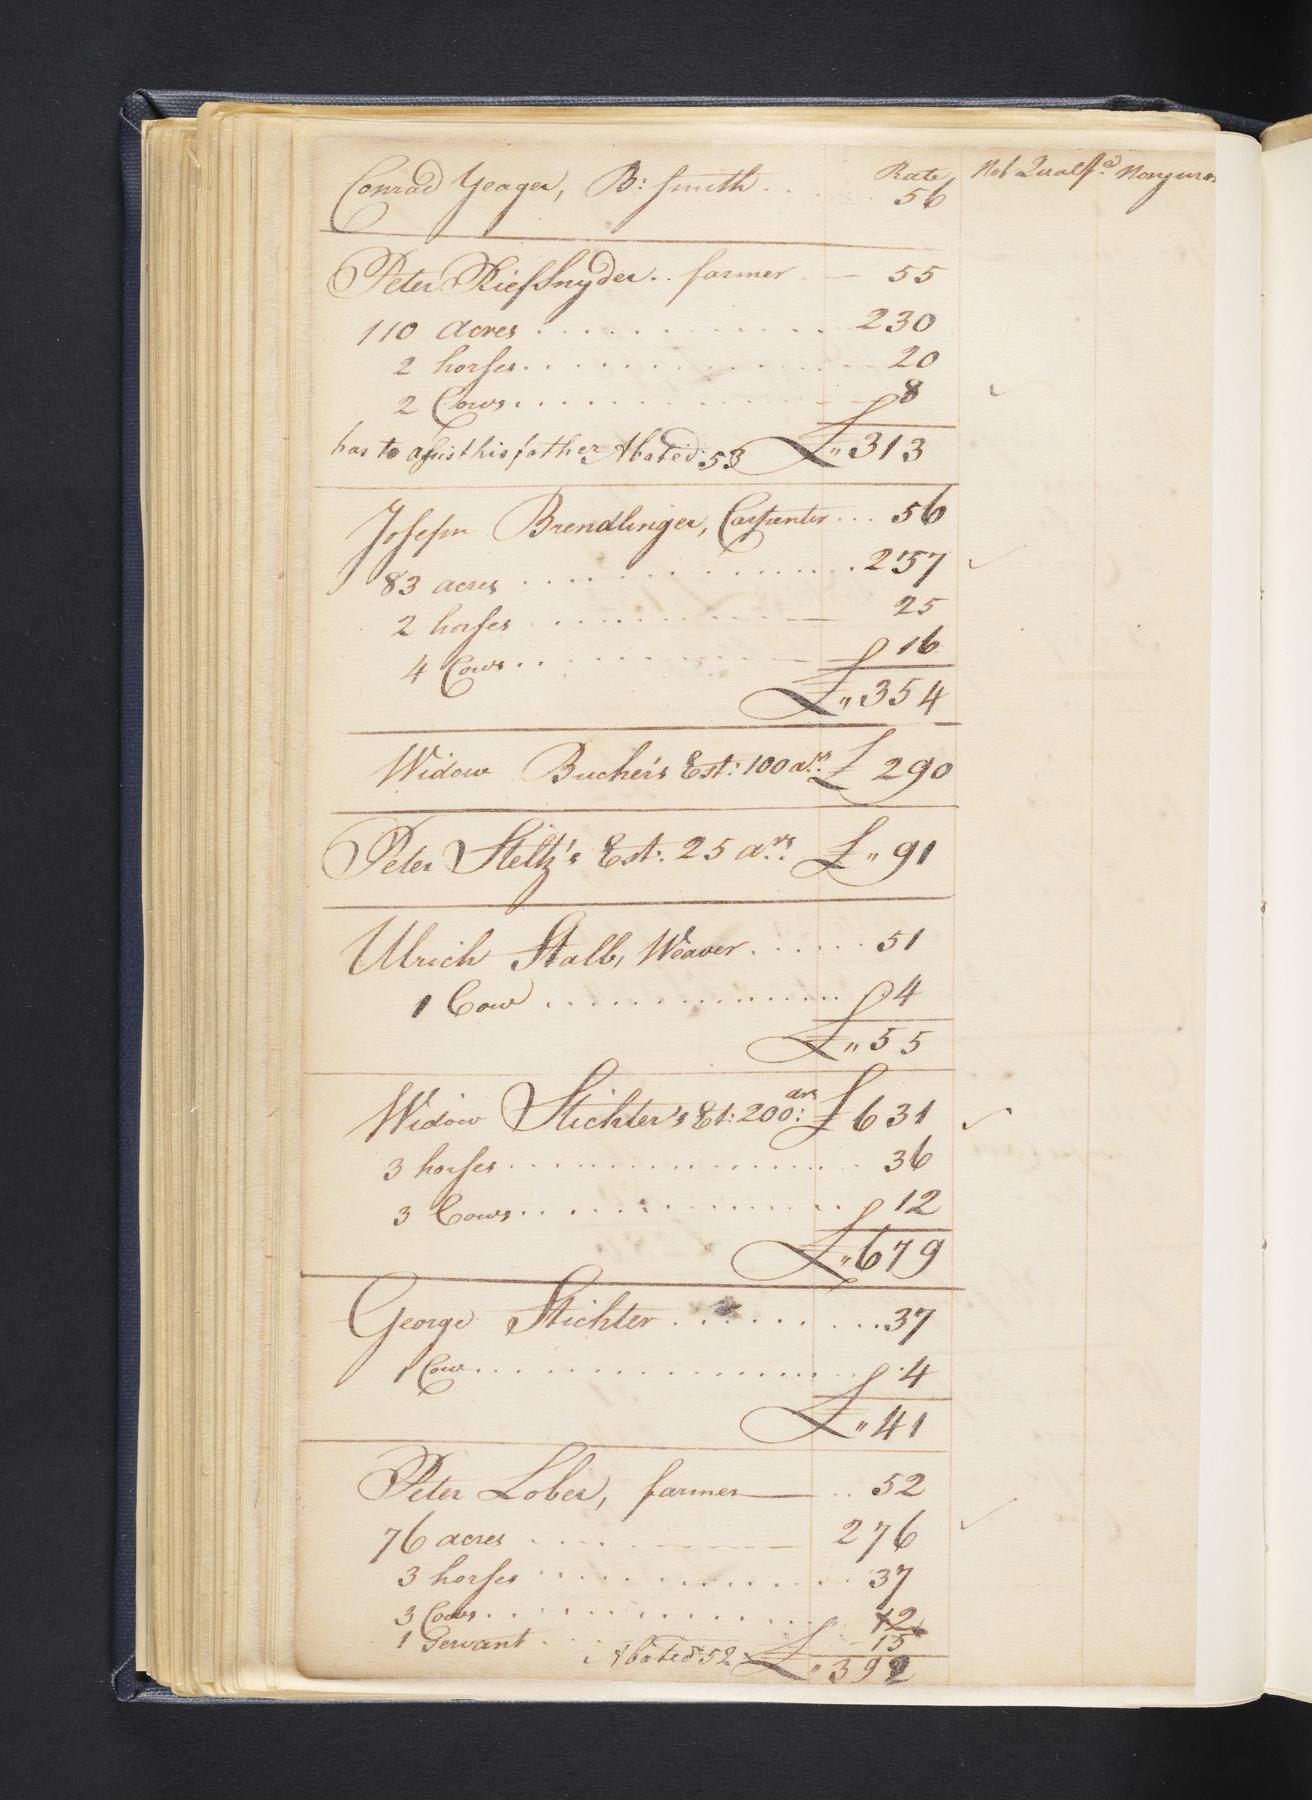 Rate, Not Qualifd. Nonjuro.
Conrad Yeager, B: Smith . . . . 56
Peter Riefsnyder . . farmer — 55
110 acres . . . . . . . . . . . . 230
2 horses . . . . . . . . . . . . 20
2 Cows . . . . . . . . . . . . 8
has to assist his father Abated 53 £ " 313
Joseph Brendlinger, Carpenter . . . 56
83 acres . . . . . . . . . . . . 257
2 horses . . . . . . . . . . . . 25
4 Cows . . . . . . . . . . . . 16
£ " 354
Widow Bucher's Est: 100 ars. £ 290
Peter Steltz's Est: 25 ars. £ " 91
Ulrich Stalb, Weaver . . . . . . 51
1 Cow . . . . . . . . . . . . 4
£ " 55
Widow Stichter's Et: 200: ars £ 631
3 horses . . . . . . . . . . . . 36
3 Cows . . . . . . . . . . . . 12
£ " 679
George Stichter . . . . . . . . . 37
1 Cow . . . . . . . . . . . . 4
£ " 41
Peter Lober, farmer — . . 52
76 acres . . . . . . . . . . . . 276
3 horses . . . . . . . . . . . . 37
3 Cows . . . . . . . . . . . . 12
1 Servant . . . . 15
Abated 52 £ " 392